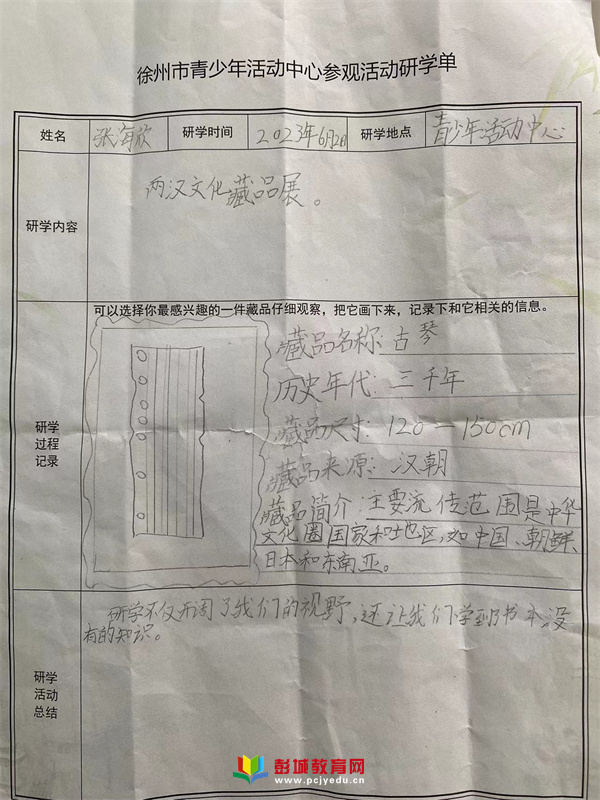 徐州市青少年活动中心参观活动研学单
姓名 张海欣 研学时间 2023年6月2日 研学地点 青少年活动中心
研学内容 两汉文化藏品展。
可以选择你最感兴趣的一件藏品仔细观察，把它画下来，记录下和它相关的信息。
研学
过程
记录
藏品名称:古琴
历史年代:三千年
藏品尺寸:120—150cm
藏品来源:汉朝
藏品简介:主要流传范围是中华
文化圈国家和地区,如中国、朝鲜、
日本和东南亚。
研学
活动
总结
研学不仅开阔了我们的视野,还让我们学到书本没
有的知识。
彭城教育网
www.pcjyedu.cn